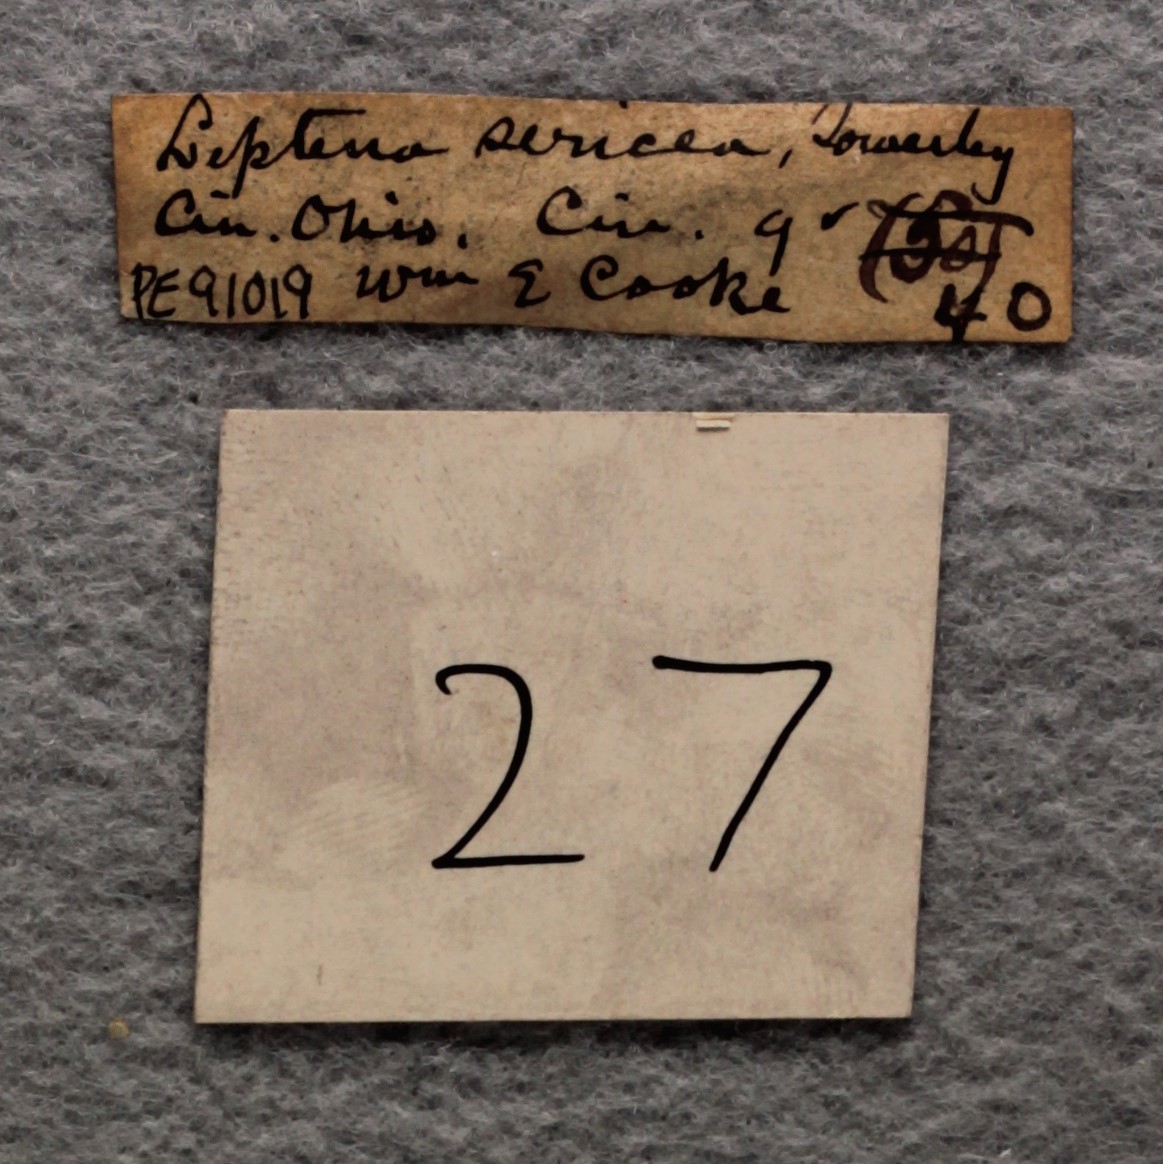 Leptena sericea, Sowerby
Cin. Ohio. Cin. gr
PE91019 Wm E Cooke 40
27